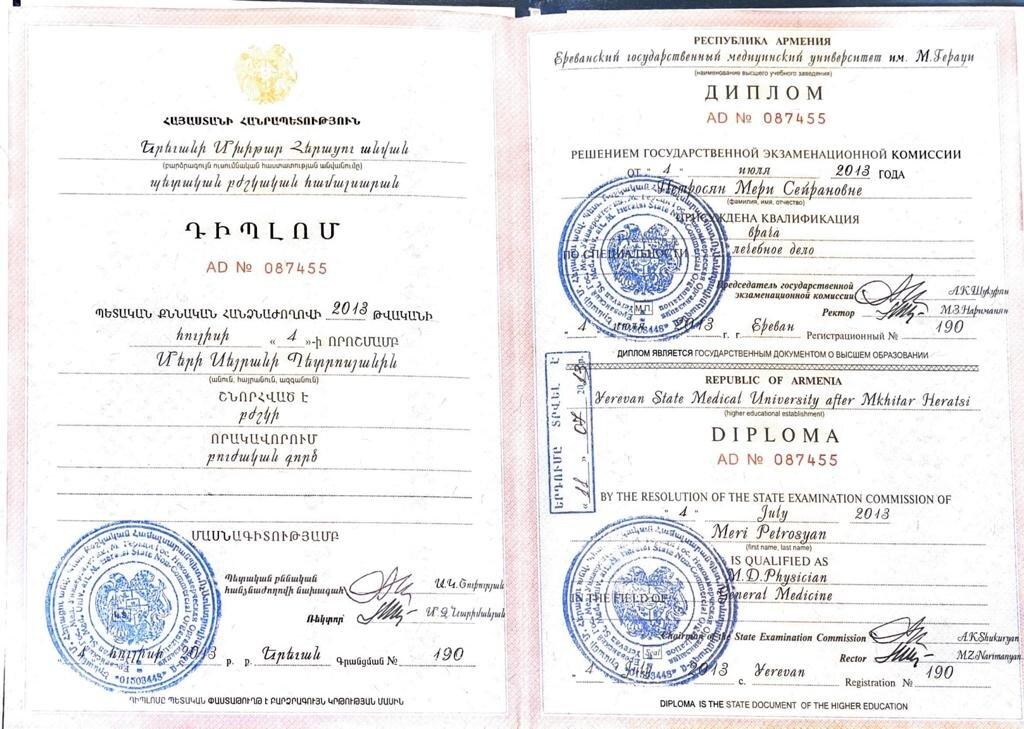 ՀԱՅԱՍՏԱՆԻ ՀԱՆՐԱՊԵՏՈՒԹՅՈՒՆ
Երևանի Մխիթար Հերացու անվան
(բարձրագույն ուսումնական հաստատության անվանումը)
պետական բժշկական համալսարան
ԴԻՊԼՈՄ
AD № 087455
ՊԵՏԱԿԱՆ ՔՆՆԱԿԱՆ ՀԱՆՁՆԱԺՈՂՈՎԻ 2013 ԹՎԱԿԱՆԻ
հուլիսի « 4 »-Ի ՈՐՈՇՄԱՄԲ
Մերի Սեյրանի Պետրոսյանին
(անուն, հայրանուն, ազգանուն)
ՇՆՈՐՀՎԱԾ Է
բժշկի
ՈՐԱԿԱՎՈՐՈՒՄ
բուժական գործ
ՄԱՍՆԱԳԻՏՈՒԹՅԱՄԲ
Պետական քննական
հանձնաժողովի նախագահ Ա.Կ.Շուքուրյան
Ռեկտոր Մ.Զ.Նարիմանյան
4 հուլիսի 2013 թ. ք. Երևան Գրանցման № 190
ԴԻՊԼՈՄԸ ՊԵՏԱԿԱՆ ՓԱՍՏԱԹՈՒՂԹ Է ԲԱՐՁՐԱԳՈՒՅՆ ԿՐԹՈՒԹՅԱՆ ՄԱՍԻՆ
РЕСПУБЛИКА АРМЕНИЯ
Ереванский государственный медицинский университет им. М.Гераци
(наименование высшего учебного заведения)
ДИПЛОМ
AD № 087455
РЕШЕНИЕМ ГОСУДАРСТВЕННОЙ ЭКЗАМЕНАЦИОННОЙ КОМИССИИ
ОТ " 4 " июля 2013 ГОДА
Петросян Мери Сейрановне
(фамилия, имя, отчество)
ПРИСУЖДЕНА КВАЛИФИКАЦИЯ
врача
лечебное дело
ПО СПЕЦИАЛЬНОСТИ
Председатель государственной
экзаменационной комиссии А.К.Шукурян
Ректор М.З.Нариманян
М.П.
" 4 " июля 2013 г. г. Ереван Регистрационный № 190
ДИПЛОМ ЯВЛЯЕТСЯ ГОСУДАРСТВЕННЫМ ДОКУМЕНТОМ О ВЫСШЕМ ОБРАЗОВАНИИ
REPUBLIC OF ARMENIA
Yerevan State Medical University after Mkhitar Heratsi
(higher educational establishment)
DIPLOMA
AD № 087455
BY THE RESOLUTION OF THE STATE EXAMINATION COMMISSION OF
" 4 " July 2013
Meri Petrosyan
(first name, last name)
IS QUALIFIED AS
M.D.Physician
IN THE FIELD OF General Medicine
Chairman of the State Examination Commission A.K.Shukuryan
Rector M.Z.Narimanyan
" 4 " July 2013 c. Yerevan
Registration № 190
DIPLOMA IS THE STATE DOCUMENT OF THE HIGHER EDUCATION
ԵՐԴՈՒՄԸ ՏՐՎԵԼ Է
« 11 » 07 2013թ.